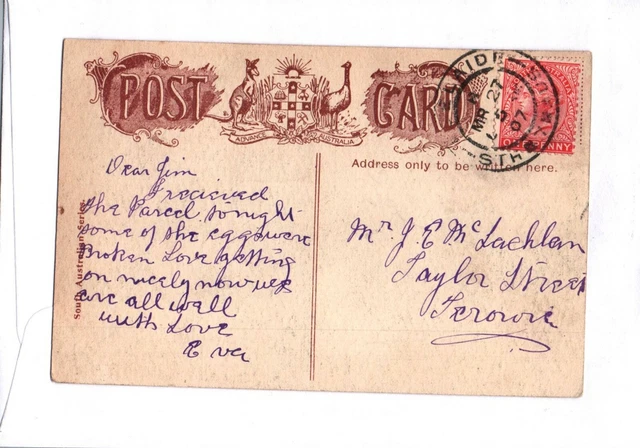 POST CARD
ADVANCE AUSTRALIA
Address only to be written here.
South Australian Series.
ADELAIDE
MR 27
5
07
STH
PENNY
Dear Jim
I recieved
the Parcel tonight
some of the eggs were
Broken Love getting
on nicely now we
are all well
with Love
Eva
Mr. J. E. McLachlan
Taylor Street
Terowie